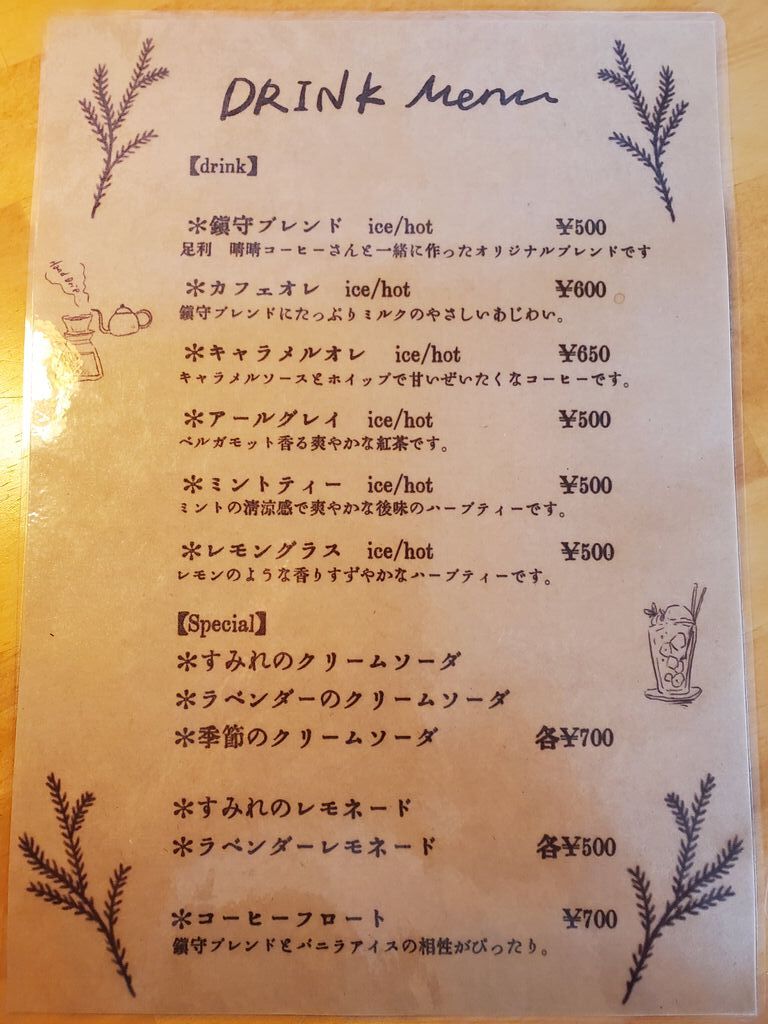 DRINK Menu
【drink】
＊鎮守ブレンド ice/hot ¥500
足利 晴晴コーヒーさんと一緒に作ったオリジナルブレンドです
Hand Drip
＊カフェオレ ice/hot ¥600
鎮守ブレンドにたっぷりミルクのやさしいあじわい。
＊キャラメルオレ ice/hot ¥650
キャラメルソースとホイップで甘いぜいたくなコーヒーです。
＊アールグレイ ice/hot ¥500
ベルガモット香る爽やかな紅茶です。
＊ミントティー ice/hot ¥500
ミントの清涼感で爽やかな後味のハーブティーです。
＊レモングラス ice/hot ¥500
レモンのような香りすずやかなハーブティーです。
【Special】
＊すみれのクリームソーダ
＊ラベンダーのクリームソーダ
＊季節のクリームソーダ 各¥700
＊すみれのレモネード
＊ラベンダーレモネード 各¥500
＊コーヒーフロート ¥700
鎮守ブレンドとバニラアイスの相性がぴったり。